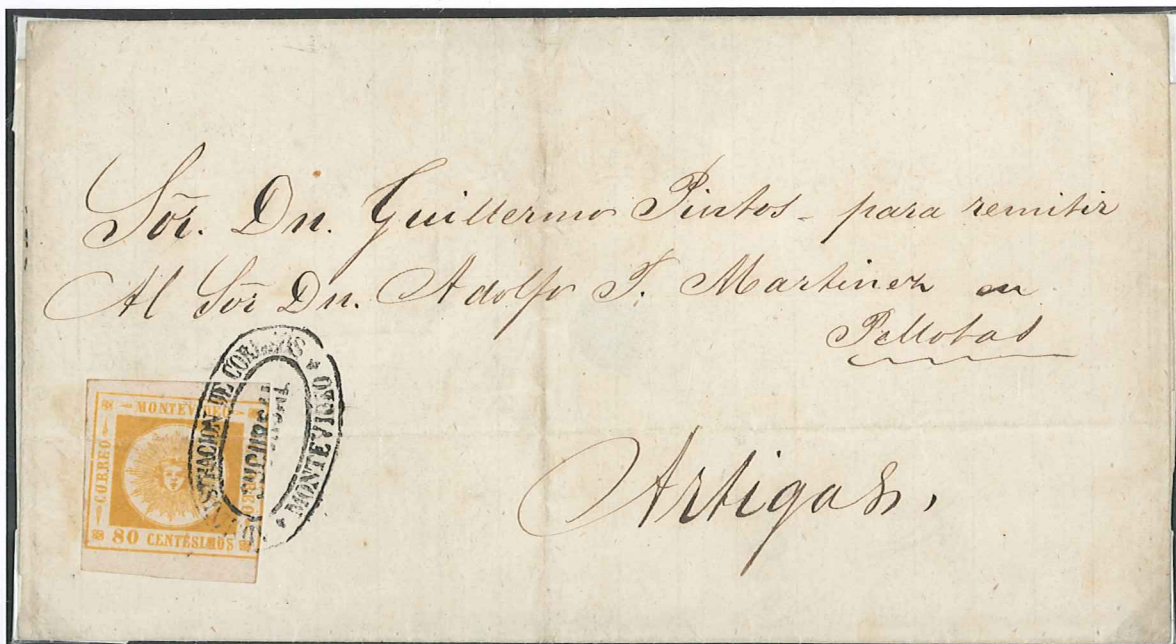 Sõr. Dn. Guillermo Pintos - para remitir
Al Sõr Dn. Adolfo F. Martinez en
Pellotas
Artigas.
MONTEVIDEO
CORREO
CORREO
80 CENTÉSIMOS
ADMINISTRACION DE CORREOS
* MONTEVIDEO *
SUCURSAL